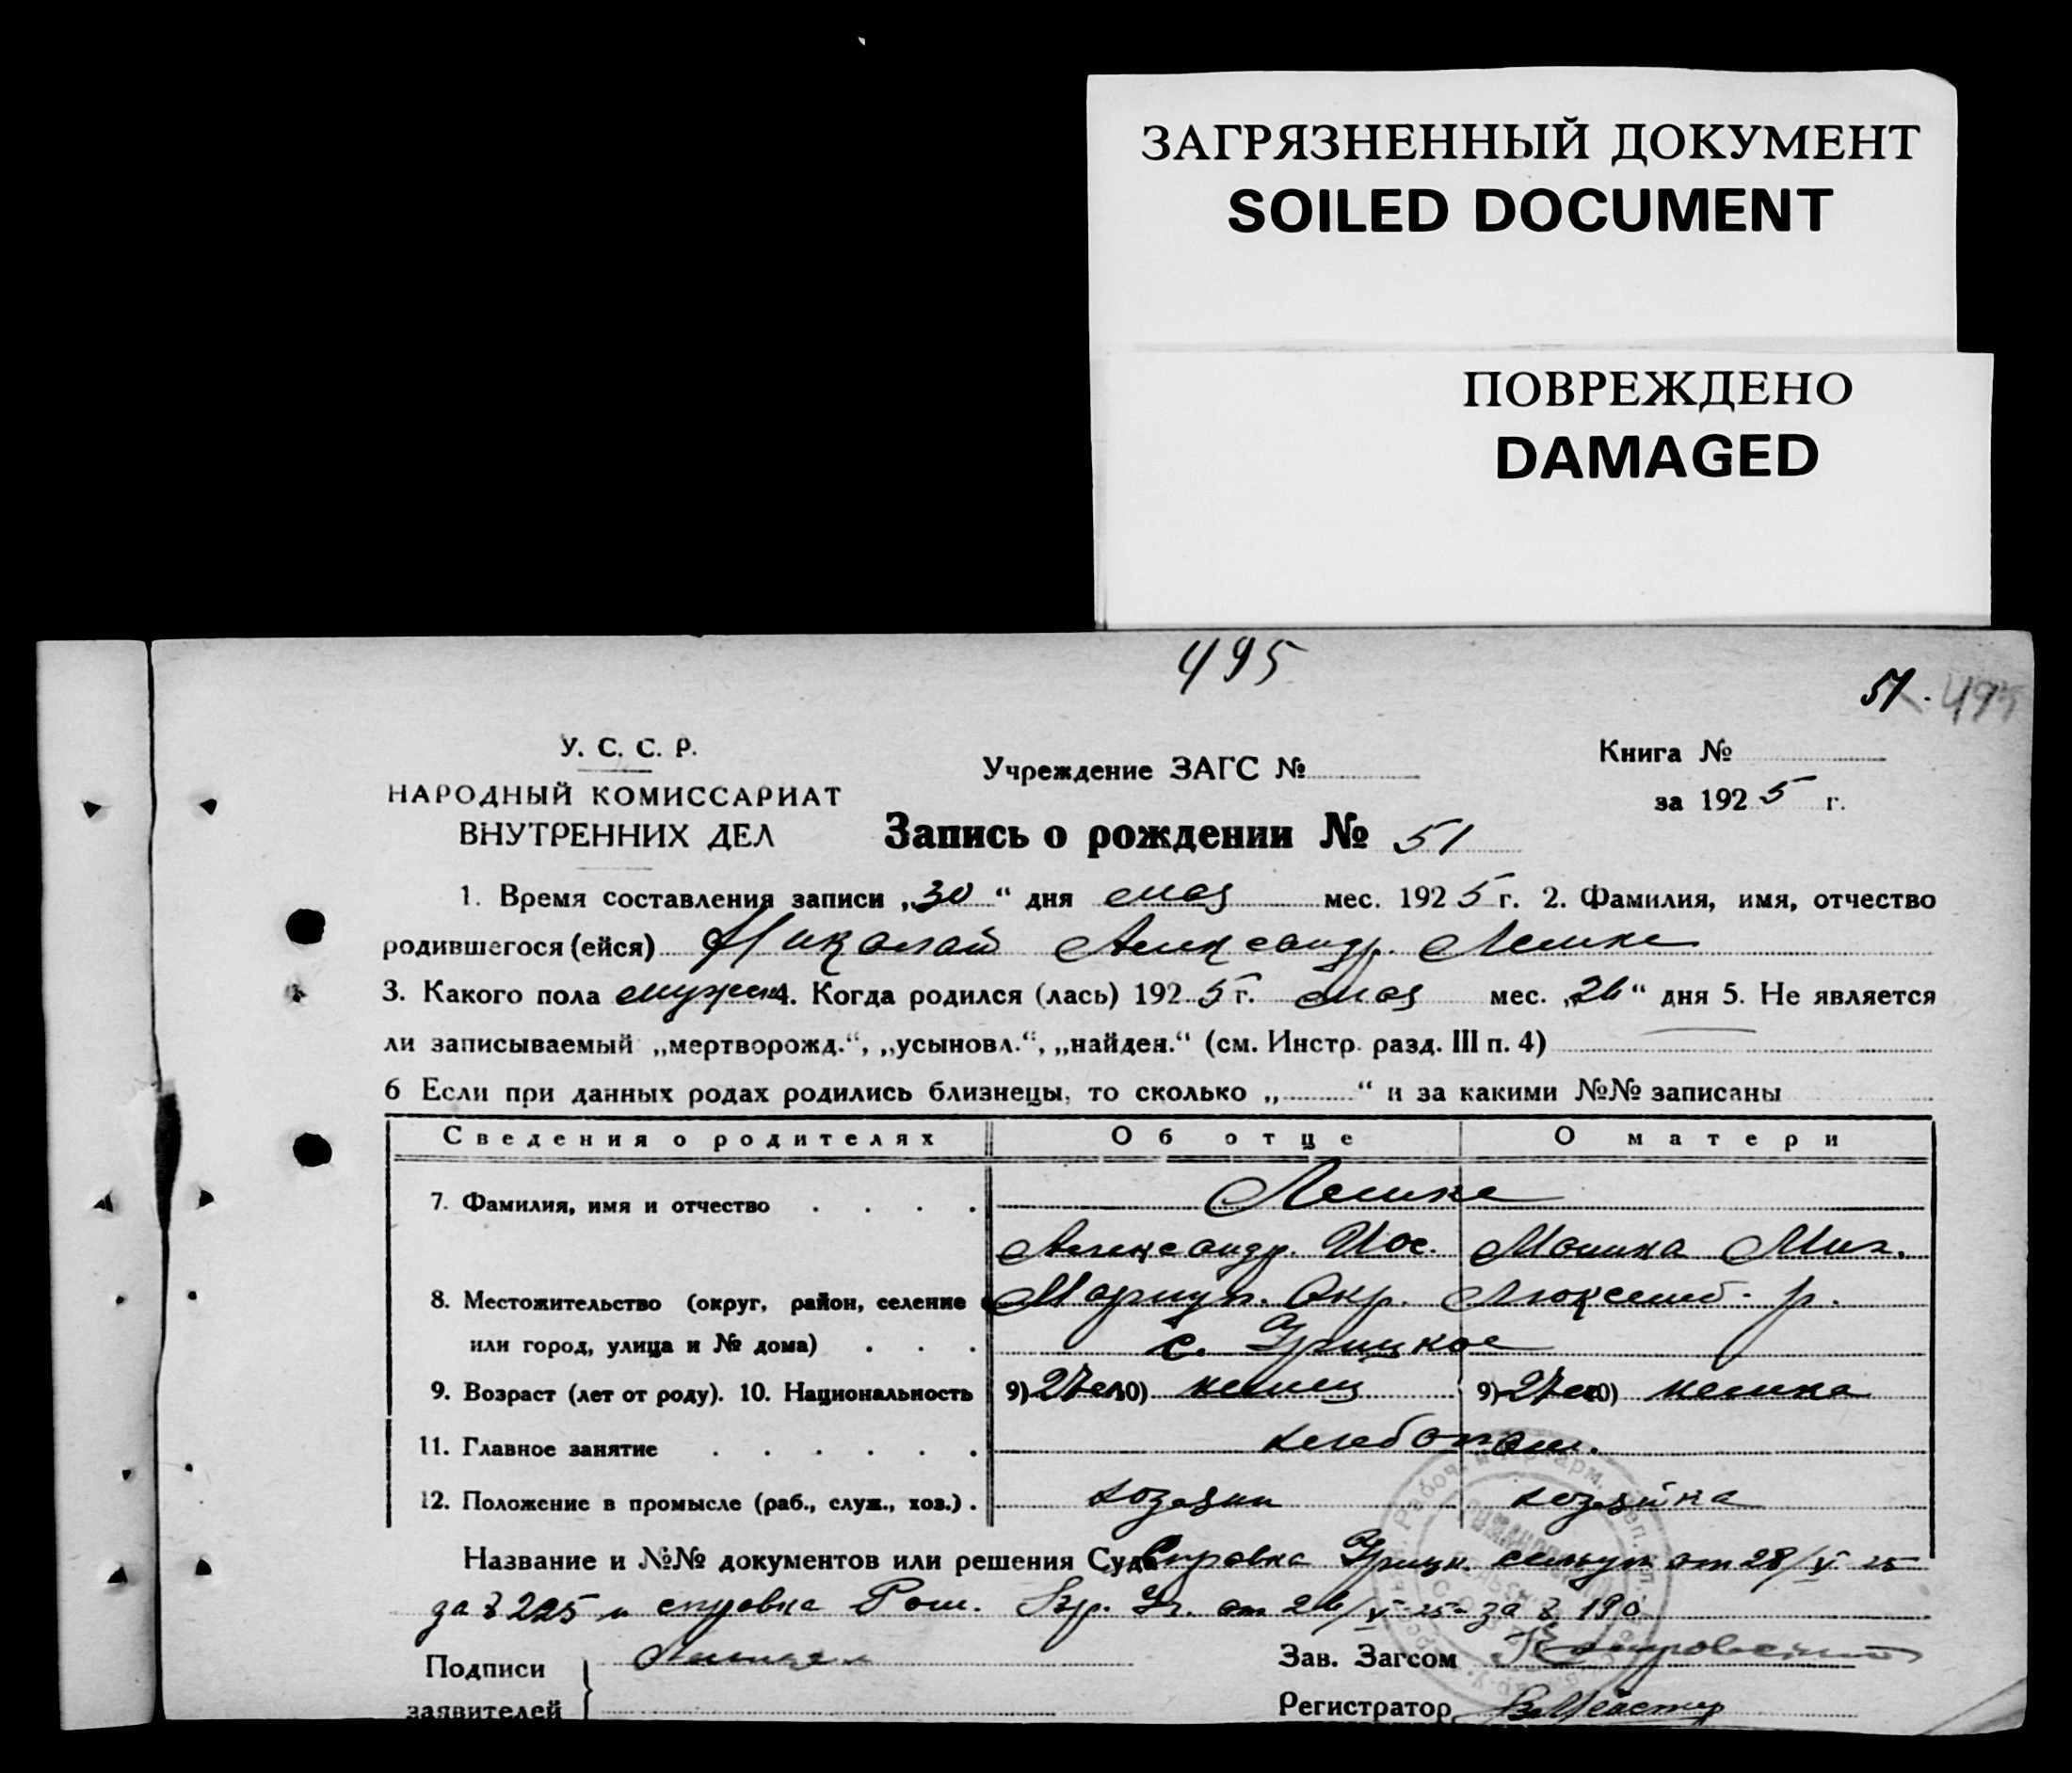 ЗАГРЯЗНЕННЫЙ ДОКУМЕНТ
SOILED DOCUMENT
ПОВРЕЖДЕНО
DAMAGED
495
51. 495
У. С. С. Р.
НАРОДНЫЙ КОМИССАРИАТ
ВНУТРЕННИХ ДЕЛ
Учреждение ЗАГС №
Книга №
за 1925 г.
Запись о рождении № 51
1. Время составления записи „30“ дня мая мес. 1925 г. 2. Фамилия, имя, отчество
родившегося (ейся) Николай Александр. Лемке
3. Какого пола мужск 4. Когда родился (лась) 1925 г. мая мес. „26“ дня 5. Не является
ли записываемый „мертворожд.“, „усыновл.“, „найден.“ (см. Инстр. разд. III п. 4)
6 Если при данных родах родились близнецы, то сколько „ “ и за какими №№ записаны
Сведения о родителях Об отце О матери
7. Фамилия, имя и отчество Лемке
Александр. Иос. Мих.
8. Местожительство (округ, район, селение Мариуп. Окр. Люксемб. р.
или город, улица и № дома) с. Урицкое
9. Возраст (лет от роду). 10. Национальность 9) 27 10) немец 9) 27 10) немка
11. Главное занятие хлебопаш.
12. Положение в промысле (раб., служ., хоз.) хозяин хозяйка
Название и №№ документов или решения Суда Справка Урицк. от 28/V 25
за № 225 и справка от 26/V-25- за № 190
Подписи
заявителей
Зав. Загсом
Регистратор